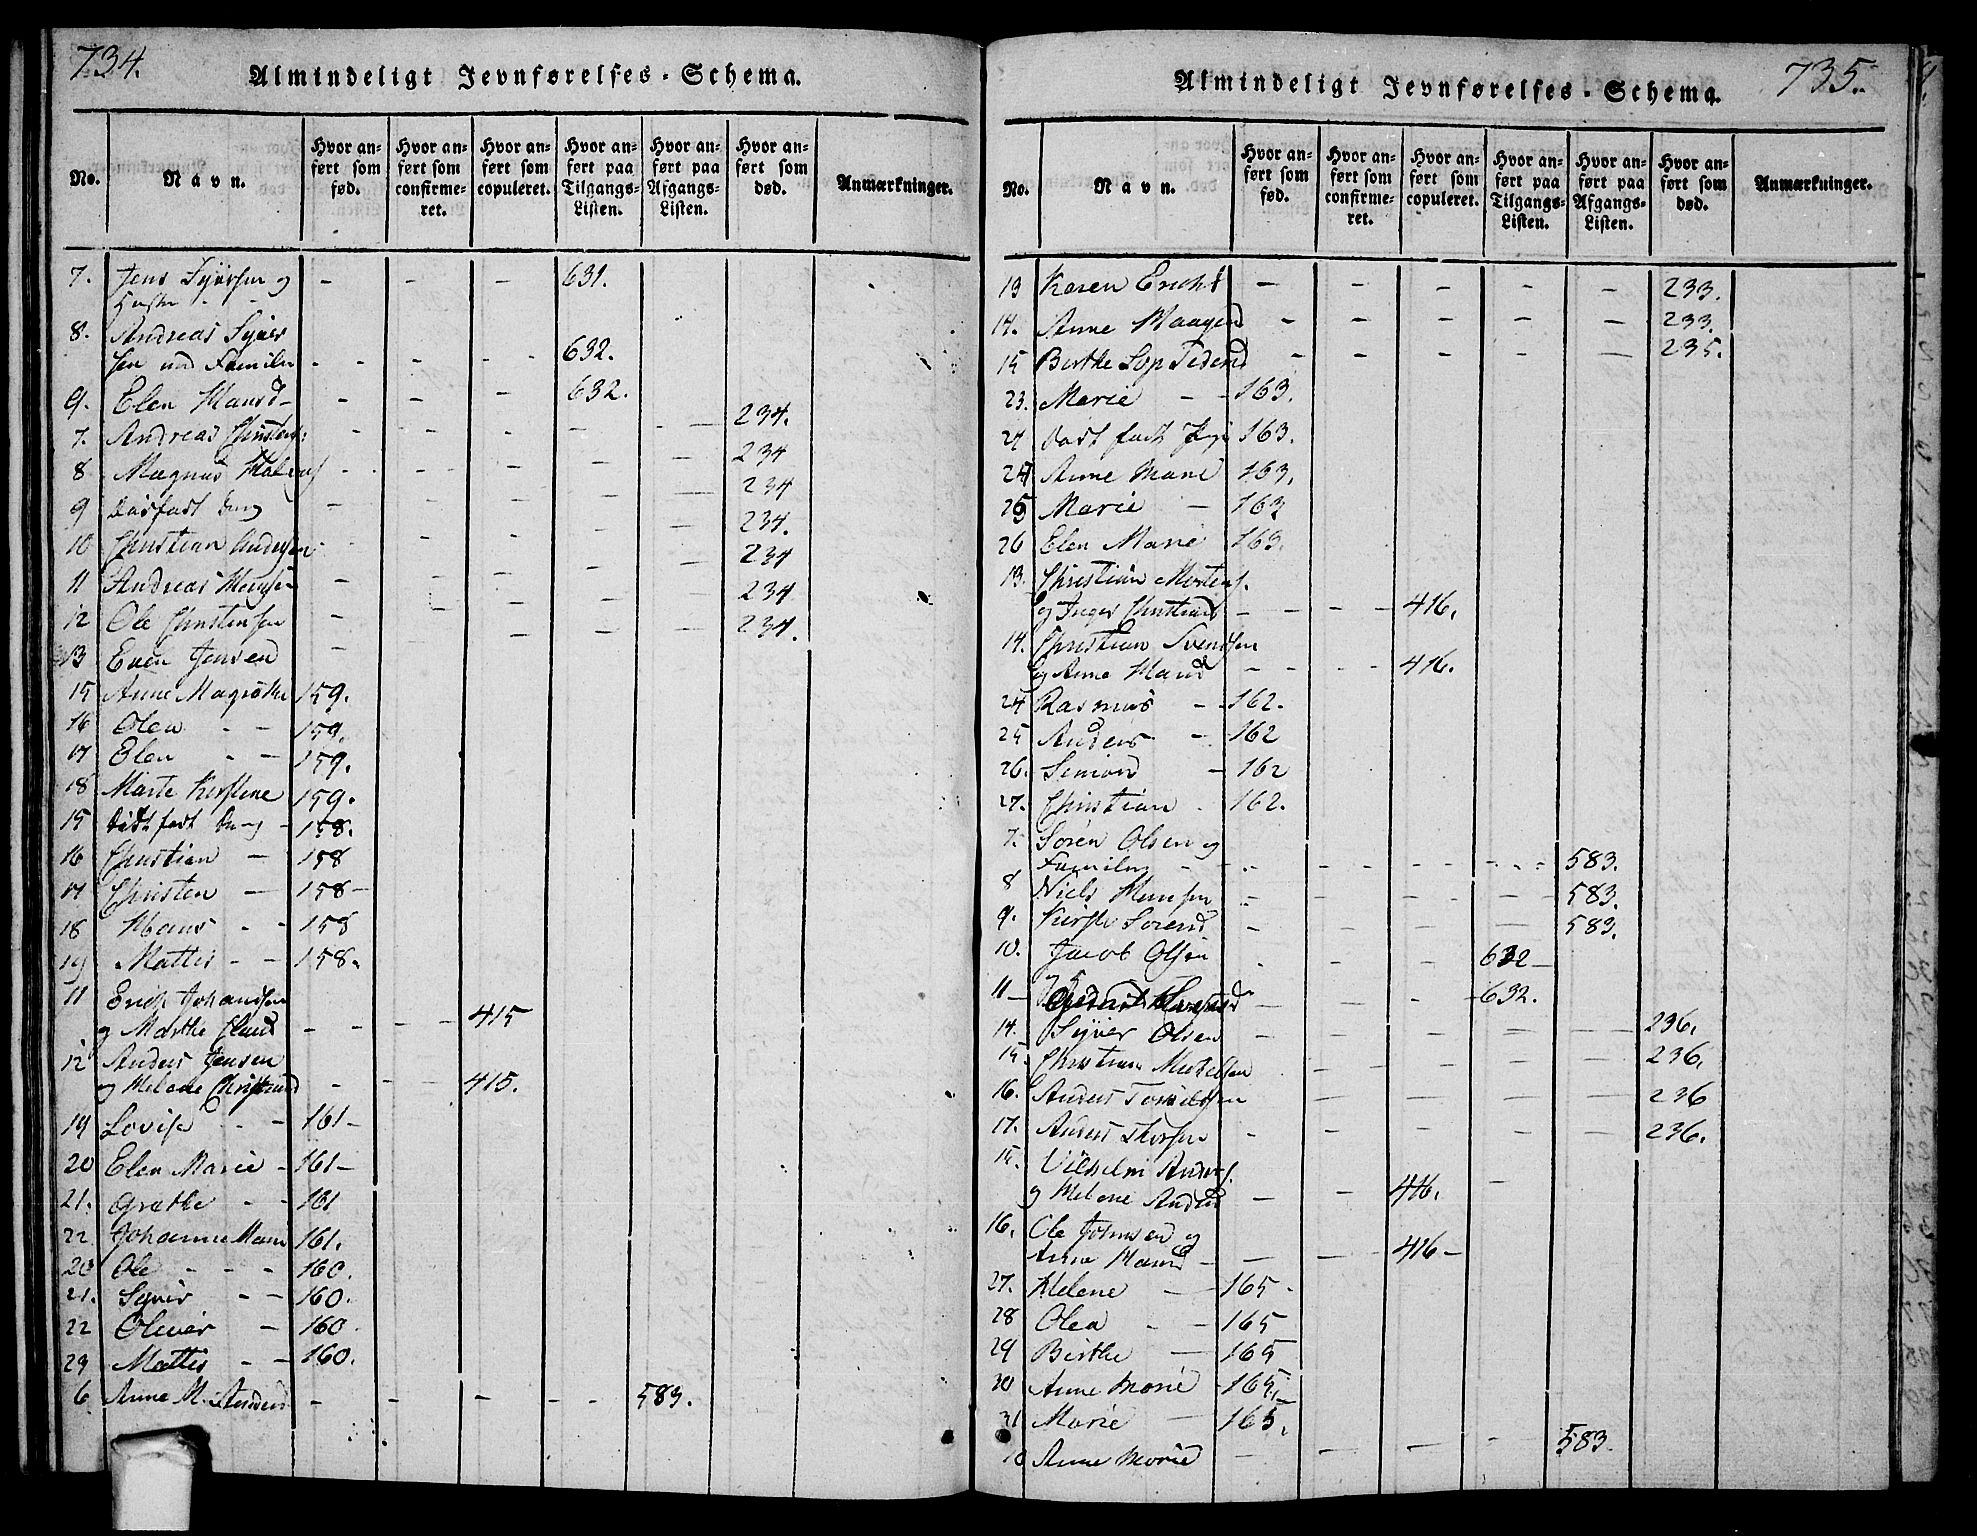 734.
Almindeligt Jevnførelses-Schema.
No.
Navn.
Hvor anført som fød.
Hvor anført som confirmeret.
Hvor anført som copuleret.
Hvor anført paa Tilgangs-Listen.
Hvor anført paa Afgangs-Listen.
Hvor anført som død.
Anmærkninger.
7. Jens Syversen og - - - 631.
8. Andreas Syver
sen med Familie - - - 632.
9. Elen Hansd - - - 632.
7. Andreas Christens: - - - - - 234.
8 Magnus - - - - - 234
9 - - - - - 234
10 Christian Andersen - - - - - 234.
11 Andreas Hansen - - - - - 234
12 Ole Christensen - - - - - 234
13 Even Jensen - - - - - 234.
15 Anne 159.
16 Olea - - 159.
17 Elen - - 159.
18 Marte Kirstine 159.
15 158.
16 Christian - 158
17 Christen - 158 -
18 Hans - - 158
19 Mattis - - 158.
11 Erich Johansen
og Marthe - - - 415
12 Anders Jensen
og Helene - - - 415.
19 Lovise - - 161 -
20 Elen Marie - 161 -
21. Grethe - - 161
22 Johanne Marie 161.
20 Ole - - - 160.
21. Syver - - 160.
22 Oliver - 160
23 Mattis - - 160.
6 Anne M. Anders - - - - 583.
735.
Almindeligt Jevnførelses-Schema.
No.
Navn.
Hvor anført som fød.
Hvor anført som confirmeret.
Hvor anført som copuleret.
Hvor anført paa Tilgangs-Listen.
Hvor anført paa Afgangs-Listen.
Hvor anført som død.
Anmærkninger.
13 Karen - - - - - 233.
14. Anne - - - - - 233.
15 Berthe - - - - - 235.
23. Marie - - 163.
163.
24 Anne Marie 163.
25 Marie - 163
26 Elen Marie 163.
13. Christian Mortens.
og Inger - - - - 416.
14. Christian Svendsen
og Anne Hansd - - - - 416.
24 Rasmus - - 162.
25 Anders - 162
26. Simon - 162
27. Christian 162.
7. Søren Olsen og
Familie - - - - 583.
8 Niels Hansen - - - - 583.
9. Kirste Sørensd - - - - 583.
10. Jacob Olsen - - - 632 -
11 - - - - 632.
14. Syver Olsen - - - - - 236.
15. Christian - - - - - 236.
16. Anders - - - - - 236
17. Anders - - - - - 236.
15. Vilhelm Anders.
og Helene Andersd - - 416. -
16. Ole Johnsen og
Anne Hansd - - - 416 -
27. Helene - 165 -
28 Olea - - 165
29 Berthe - 165
30 Anne Marie 165.
31 Marie - 165.
10 Anne Marie - - - - 583.